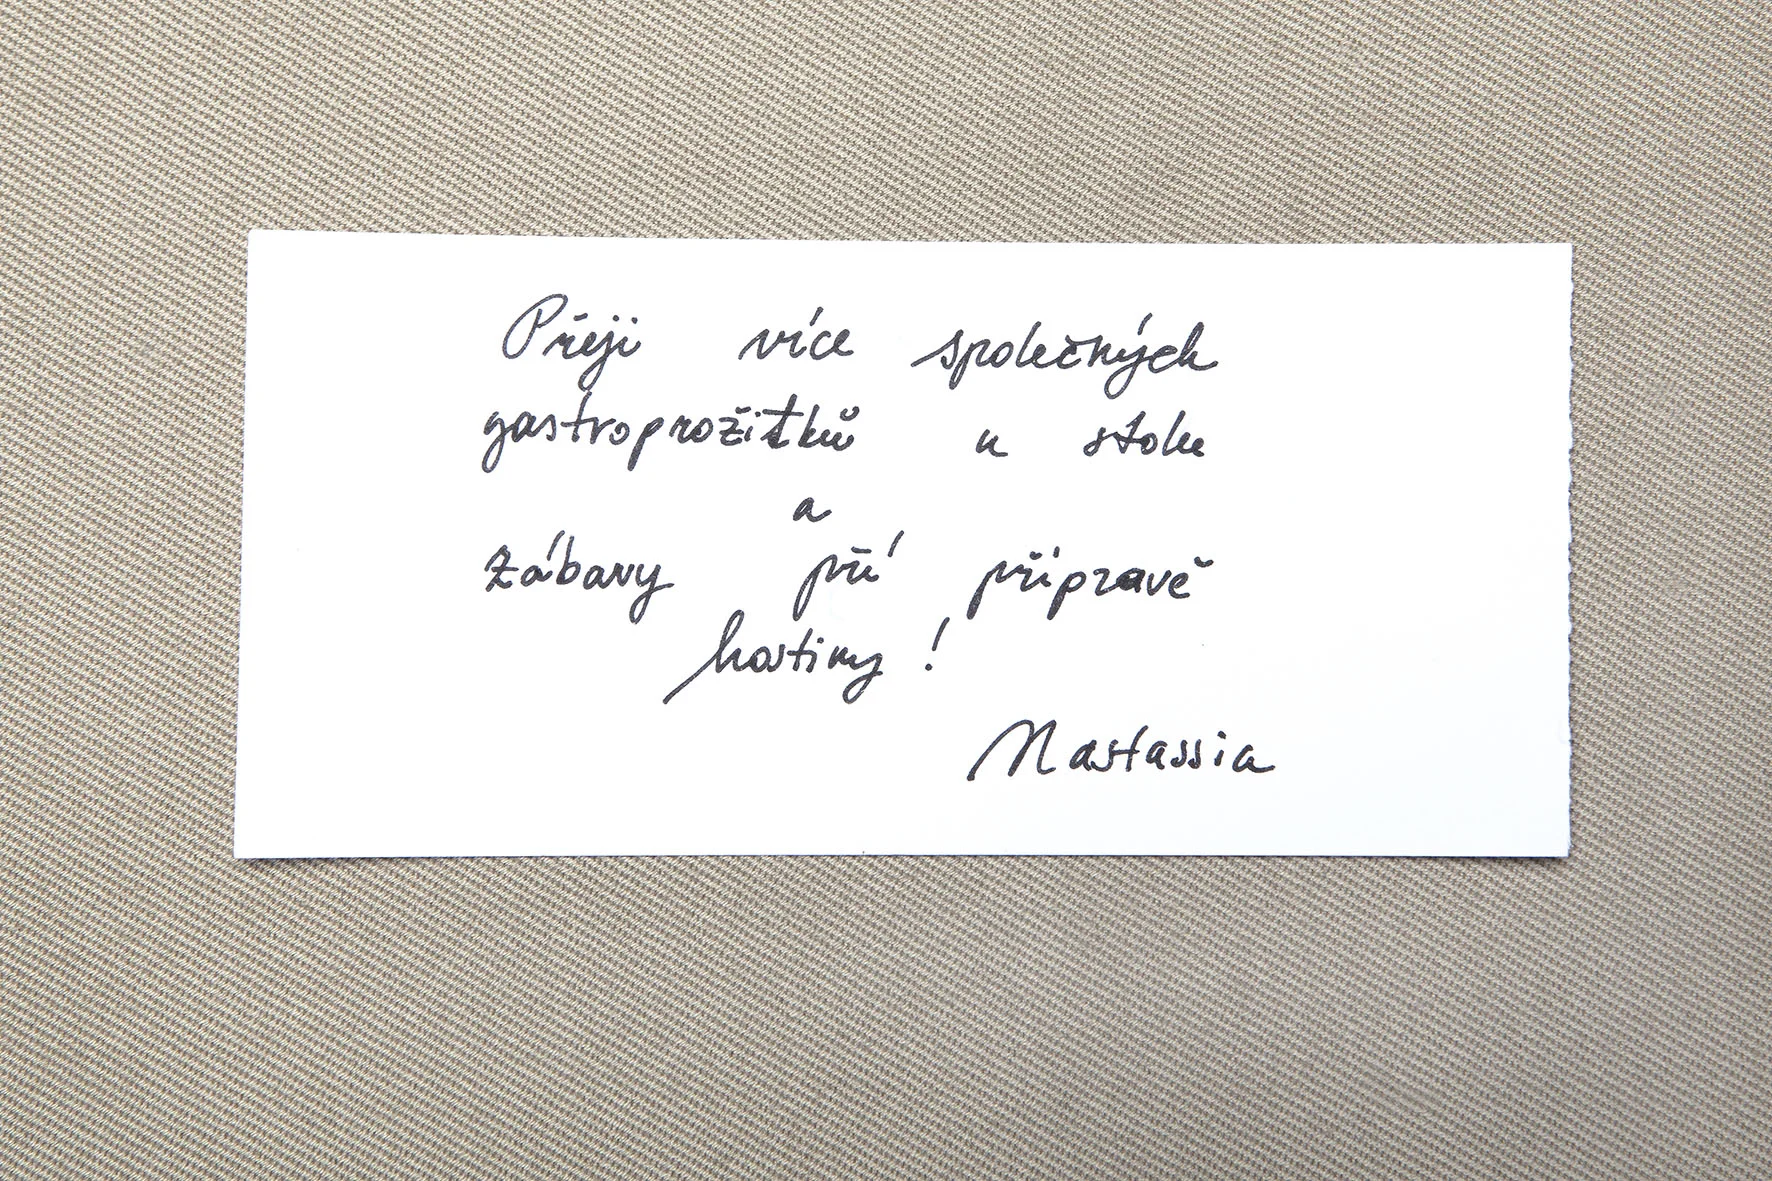 Přeji více společných
gastroprožitků u stolu
a
zábavy pří přípravě
hostiny!
Nastassia